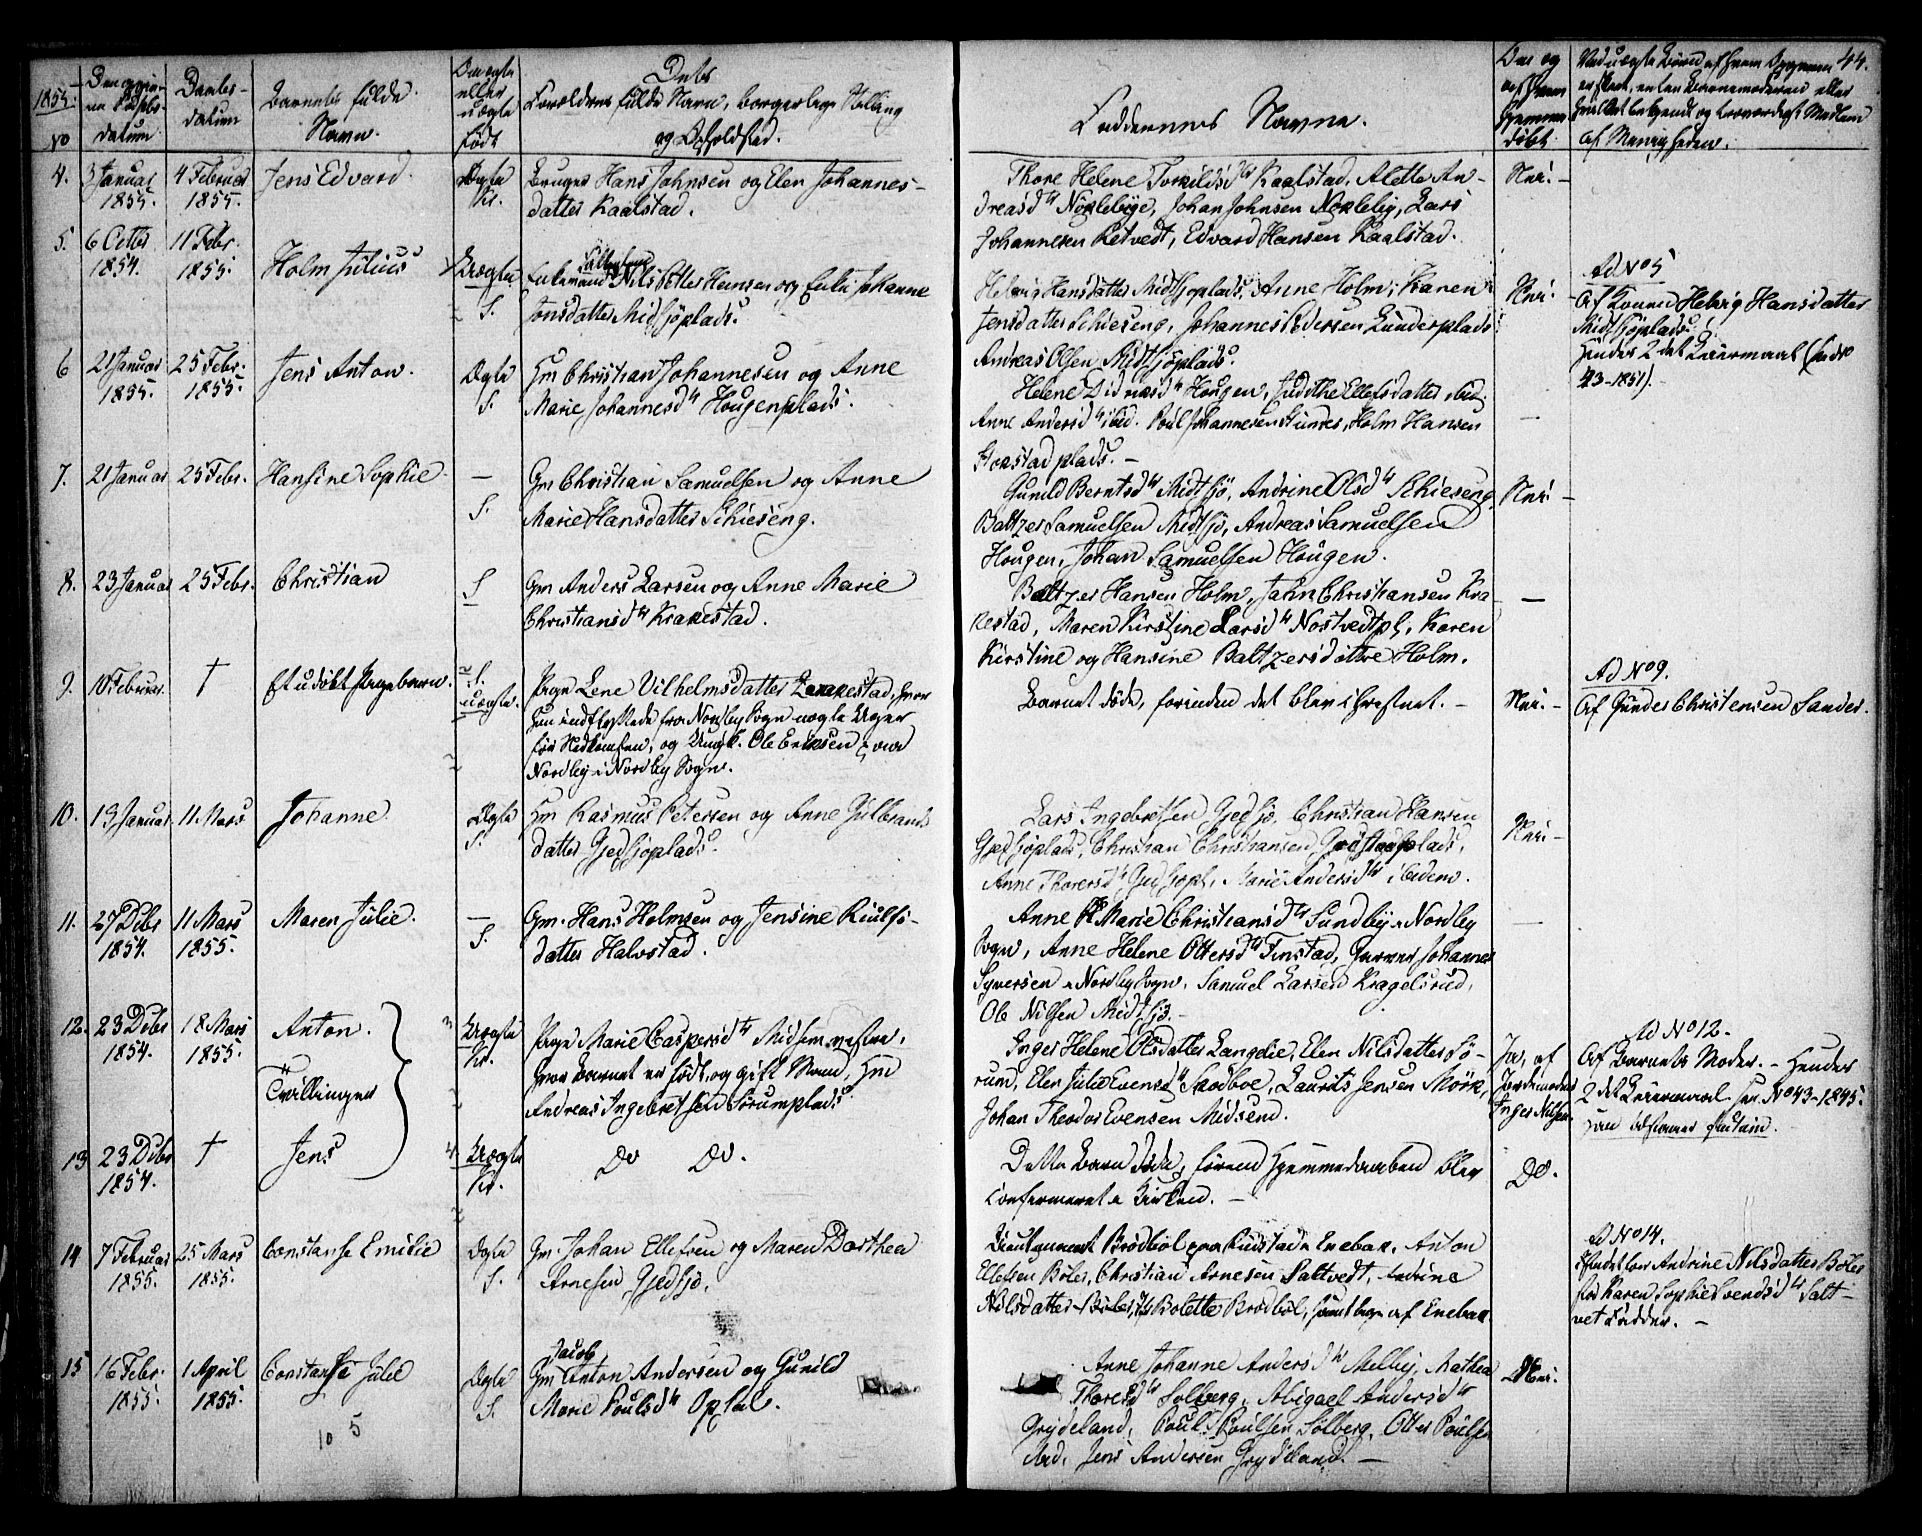 1855.
No
Den opgivne Fødselsdatum.
Daabsdatum
Barnets fulde Navn.
Om ægte eller uægte Født
Dets Forældres fulde Navn, borgerlige Stilling og Opholdsted.
Faddernes Navne.
Om og af hvem hjemmedøbt.
44.
af Menigheden.
4. 3 Januar 1855. 4 Februar 1855. Jens Edvard. Ægte
Bruger Hans Johnsen og Elen Johannes-
datter Kaalstad.
Thore Helene Torkildsd.tr Kaalstad, Alette An-
dreasd.tr Nøklebye, Johan Johnsen Nøkleby, Lars
Johannesen Retvedt, Edvard Hansen Kaalstad.
Nei. -
5. 6 Octbr 1854. 11 Febr. 1855. Holm Julius Uægte S.
Enkemand Nils Petter Hansen og Enke Johanne
Jonsdatter Midtsjøplads.
Helvig Hansdatter Midtsjøplads, Anne Holm, Karen
Jensdatter Schieseng, Johannes Pedersen Lunderplads
Andreas Olsen Midtsjøplads.
Nei. -
Ad No 5
Af Konen Helvig Hansdatter
Midtsjøplads.
Hendes 2det Leiermaal
6 21 Januar 1855. 25 Febr. 1855. Jens Anton. Ægte S.
Hm Christian Johannesen og Anne
Marie Johannesd.tr Hougenplads.
Helene Didriksd.tr Hougen, Judithe Ellefsdatter ibid.
Anne Andersd.tr ibid. Poul Johannesen Hunder, Holm Hansen
Stokstadplads. -
—
7. 21 Januar 25 Febr. Hansine Sophie. — S.
Gm Christian Samuelsen og Anne
Marie Hansdatter Schieseng.
Gunild Berntsd.tr Midtsjø, Andrine Olsd.tr Schieseng,
Baltzer Samuelsen Midtsjø, Andreas Samuelsen
Hougen, Johan Samuelsen Hougen.
Nei. -
8. 23 Januar 25 Febr. Christian S
Gm Anders Larsen og Anne Marie
Christiansd.tr Krakestad.
Baltzer Hansen Holm, Jahn Christiansen Kra-
kestad, Maren Kirstine Larsd.tr Nostvedtpl, Karen
Kirstine og Hansine Baltzersdøttre Holm.
—
9. 10 Februar. † Et udøbt Pigebarn. S. uægte.
Pige Lene Vilhelmsdatter Krakestad, hvor
hun indflyttede fra Nordby Sogn nogle Uger
før Nedkomsten, og Ungk. Ole Eriksen
Nordby i Nordby Sogn.
Barnet døde, forinden det blev christnet. -
Nei. -
Ad No 9.
Af Gunder Christensen Sander.
10. 19 Januar 11 Mars Johanne Ægte S.
Hm Rasmus Petersen og Anne Gulbrands
datter Gjedsjøplads.
Lars Ingebretsen Gjedsjø, Christian Hansen
Gjedsjøplads, Christian Christiansen
Anne Thorersd.tr Gjedsjøpl, Marie Andersd.tr ibidem.
Nei -
11. 27 Decbr 1854. 11 Mars 1855. Maren Julie. — S.
Gm. Hans Holmsen og Jensine Riulfs-
datter Halvstad.
Anne Marie Christiansd.tr Sundby i Nordby
Sogn, Anne Helene Ottersd.tr Finstad, Johannes
Syversen i Nordby Sogn, Samuel Larsen Kragelsrud,
Ole Nilsen Midtsjø. -
—
12. 23 Decbr 1854. 18 Mars 1855. Anton. Uægte
Tvillinger
Pige Marie Caspersd.tr Midsem vestre,
hvor Barnet er født, og gift Mand, Hm
Andreas Ingebretsen Sørumplads.
Inger Helene Olsdatter Langelie, Elen Nilsdatter Sø-
rum, Elen Julie Evensd.tr Skodboe, Laurits Jensen Mørk,
Johan Theodor Evensen Midsem.
Ja, af Jordemoder Inger Nilsen
Ad No 12.
Af Barnets Moder. - Hendes
2det Leiermaal No 43-1845.
13 23 Decbr 1854. † Jens Uægte
Do Do.
Dette Barn døde, førend Hjemmedaaben blev
confirmeret i Kirken. -
Do.
14 7 Februar 1855. 25 Mars 1855. Constanse Emilie Ægte S.
Gm. Johan Ellefsen og Maren Dorthea
Arnesen Gjedsjø.
Lieutenant Brødbøl paa Enebak. Anton
Ellefsen Bøler, Christian Arnesen Saltvedt, Andrine
Nilsdatter Bøler, Bolette Brødbøl, af Enebak
Ad No 14.
Andrine Nilsdatter Bøler
for Karen Sophie Svendsd.tr Salt-
vet Fadder. -
15 16 Febr. 1855. 1 April 1855. Constanse Julie Ægte S.
Jacob
Gm Anton Andersen og Gunild
Marie Poulsd.tr Opsal.
Anne Johanne Andersd.tr Melby, Mathea
Thoresd.tr Solberg, Abigael Andersd.tr
Grydeland, Poul Poulsen Solberg, Otter Poulsen
Jens Andersen Grydeland. -
Nei.
10 5